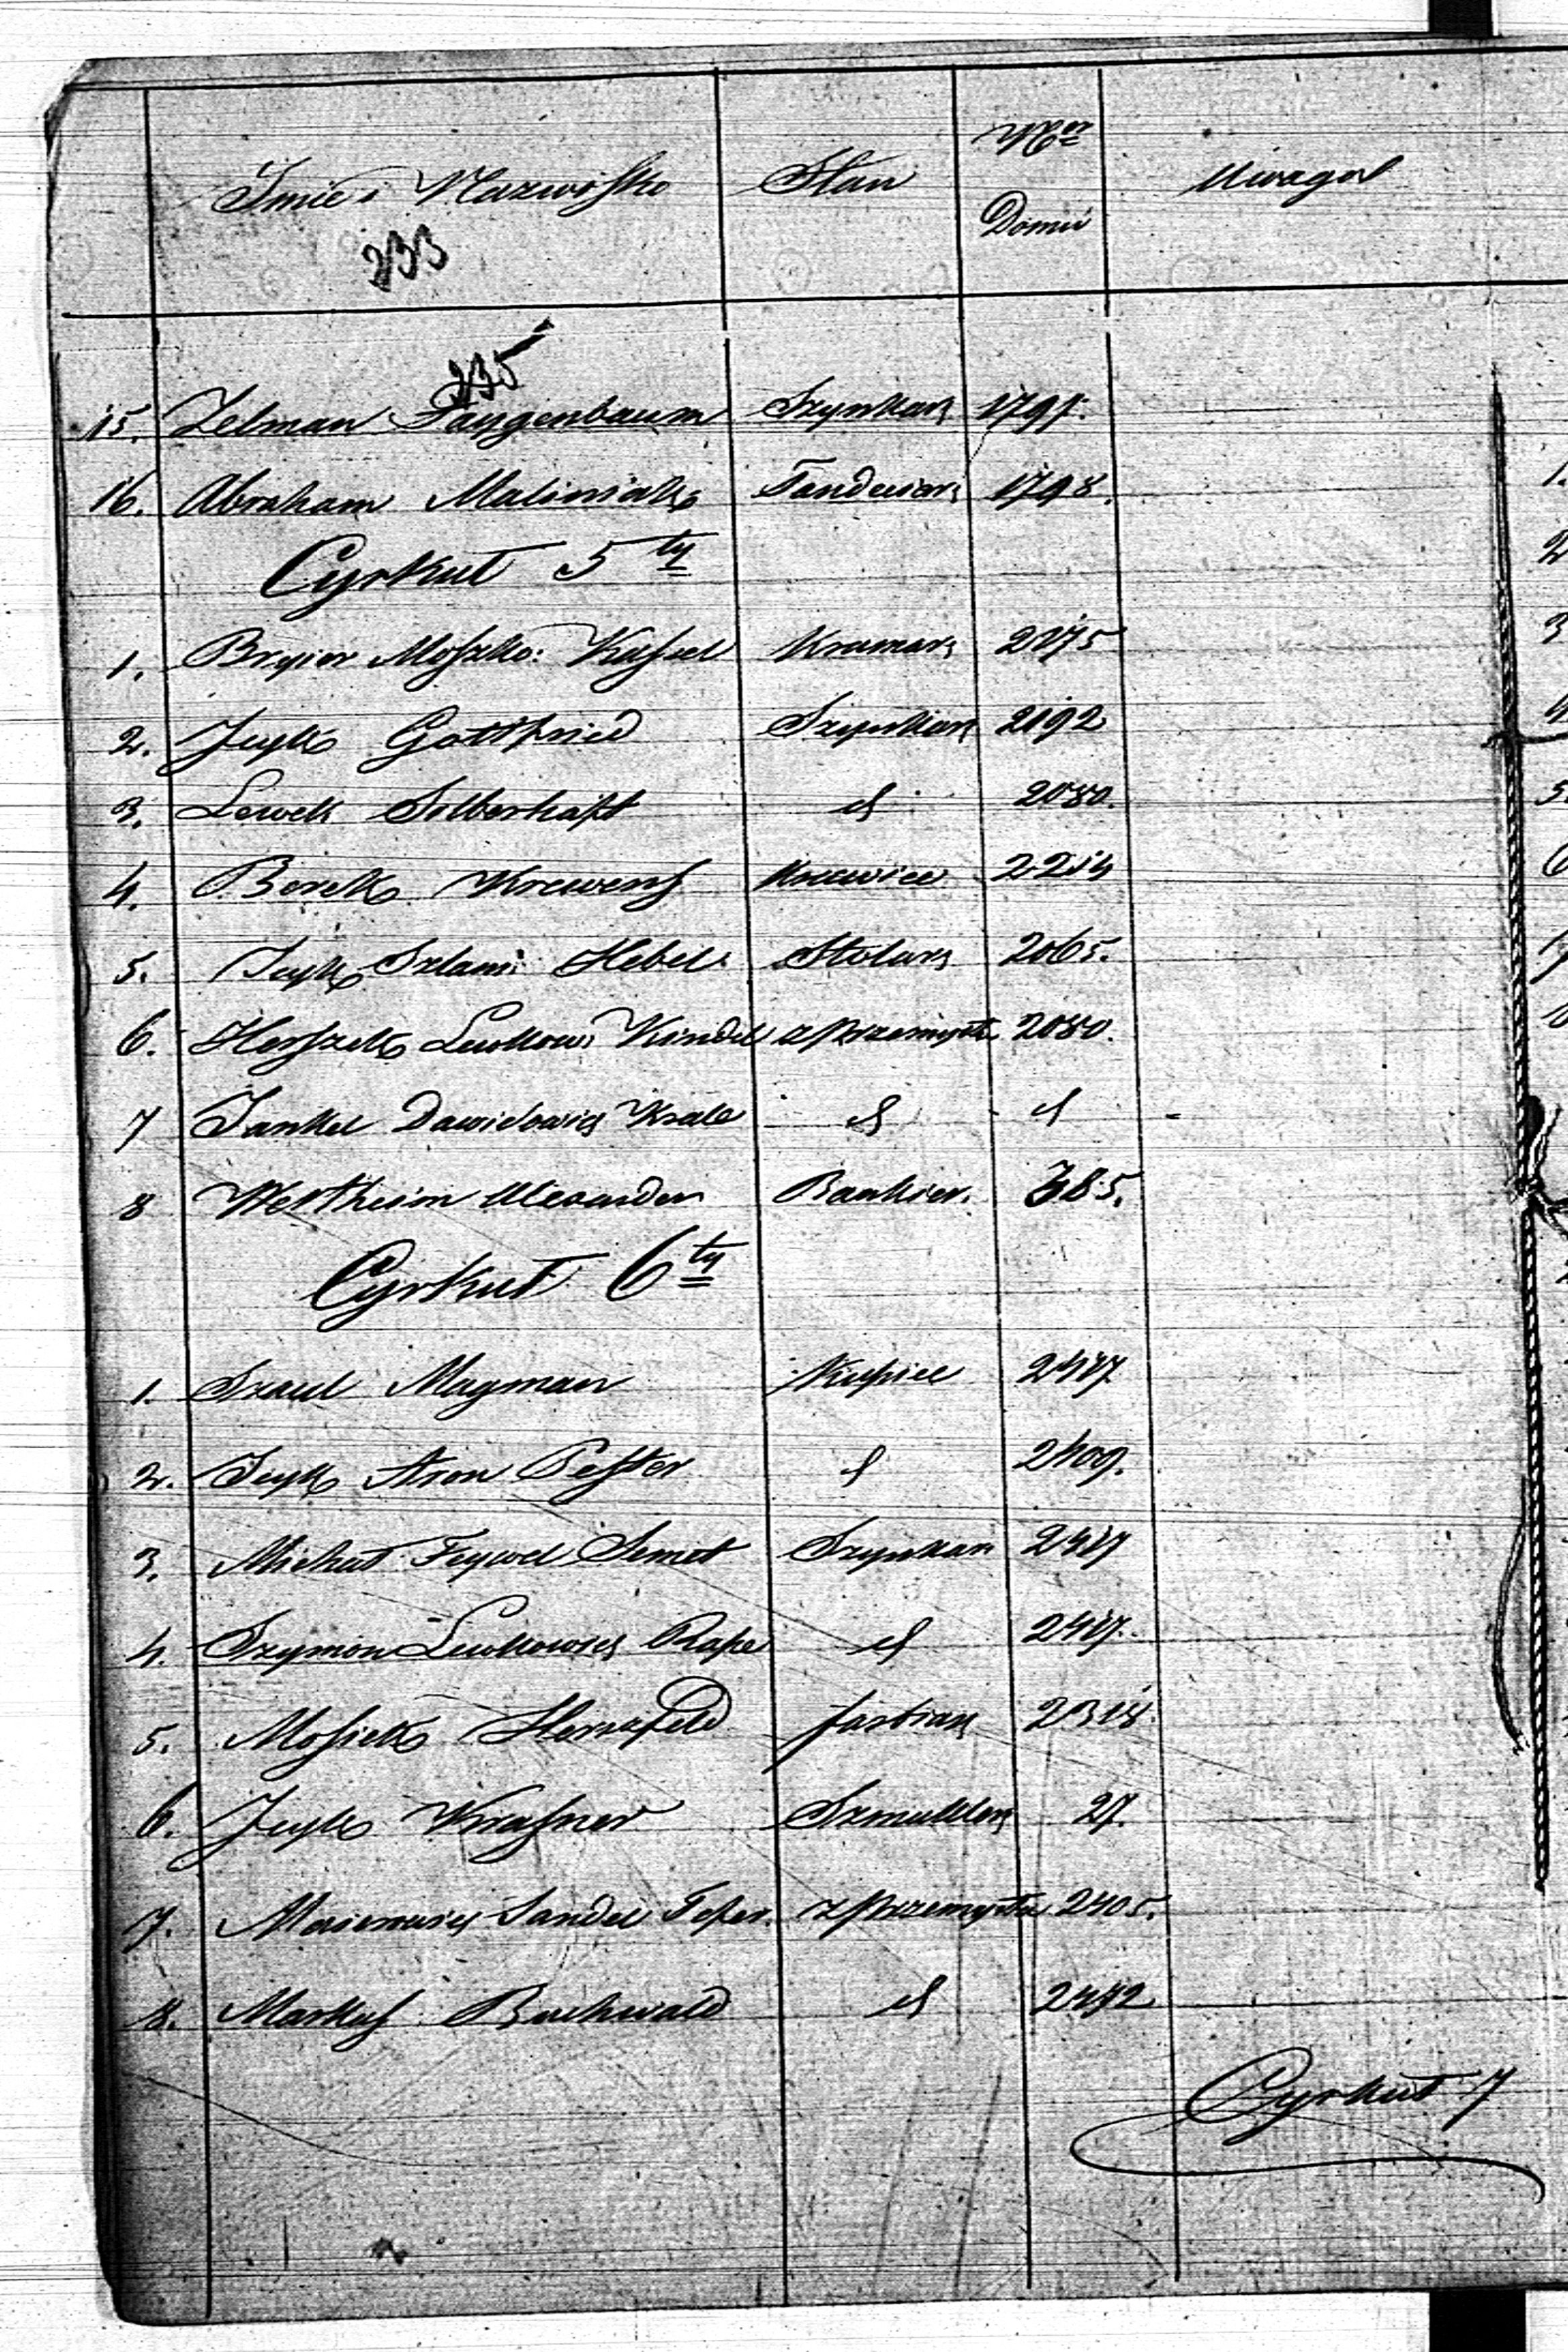 Imie i Nazwisko Stan Nro Domu Uwaga
233
235
15. Zelman Faygenbaum Szynkarz 1791.
16. Abraham Maliniak Tandeciarz 1798.
Cyrkuł 5ty
1. Bryier Moszko: Kassel Kramarz 2175
2. Jcyk Gottfried Szynkarz 2192
3. Lewek Silberhaft d 2080.
4. Berek Krewens Krawiec 2214
5. Jcyk Szlam: Hebel Stolarz 2065.
6. Herszek Lewkow: Kindel z przemysłu 2080.
7 Jankel Dawidowicz Krale d d
8 Wertheim Alexander Bankier. 385.
Cyrkuł 6ty
1. Szaul Magman Kupiec 2417
2. Jcyk Aron Pesster d 2409.
3. Michał Feywel Semet Szynkarz 2417
4. Szymon Lewkowicz Rape d 2417.
5. Mosiek Herszfeld farbiarz 2318
6. Jcyk Krasner Szmuklerz 27.
7. Sandel z przemysłu 2405.
8. Markus Buchwald d 2492
Cyrkuł 7
1.
2
3
4
5
6